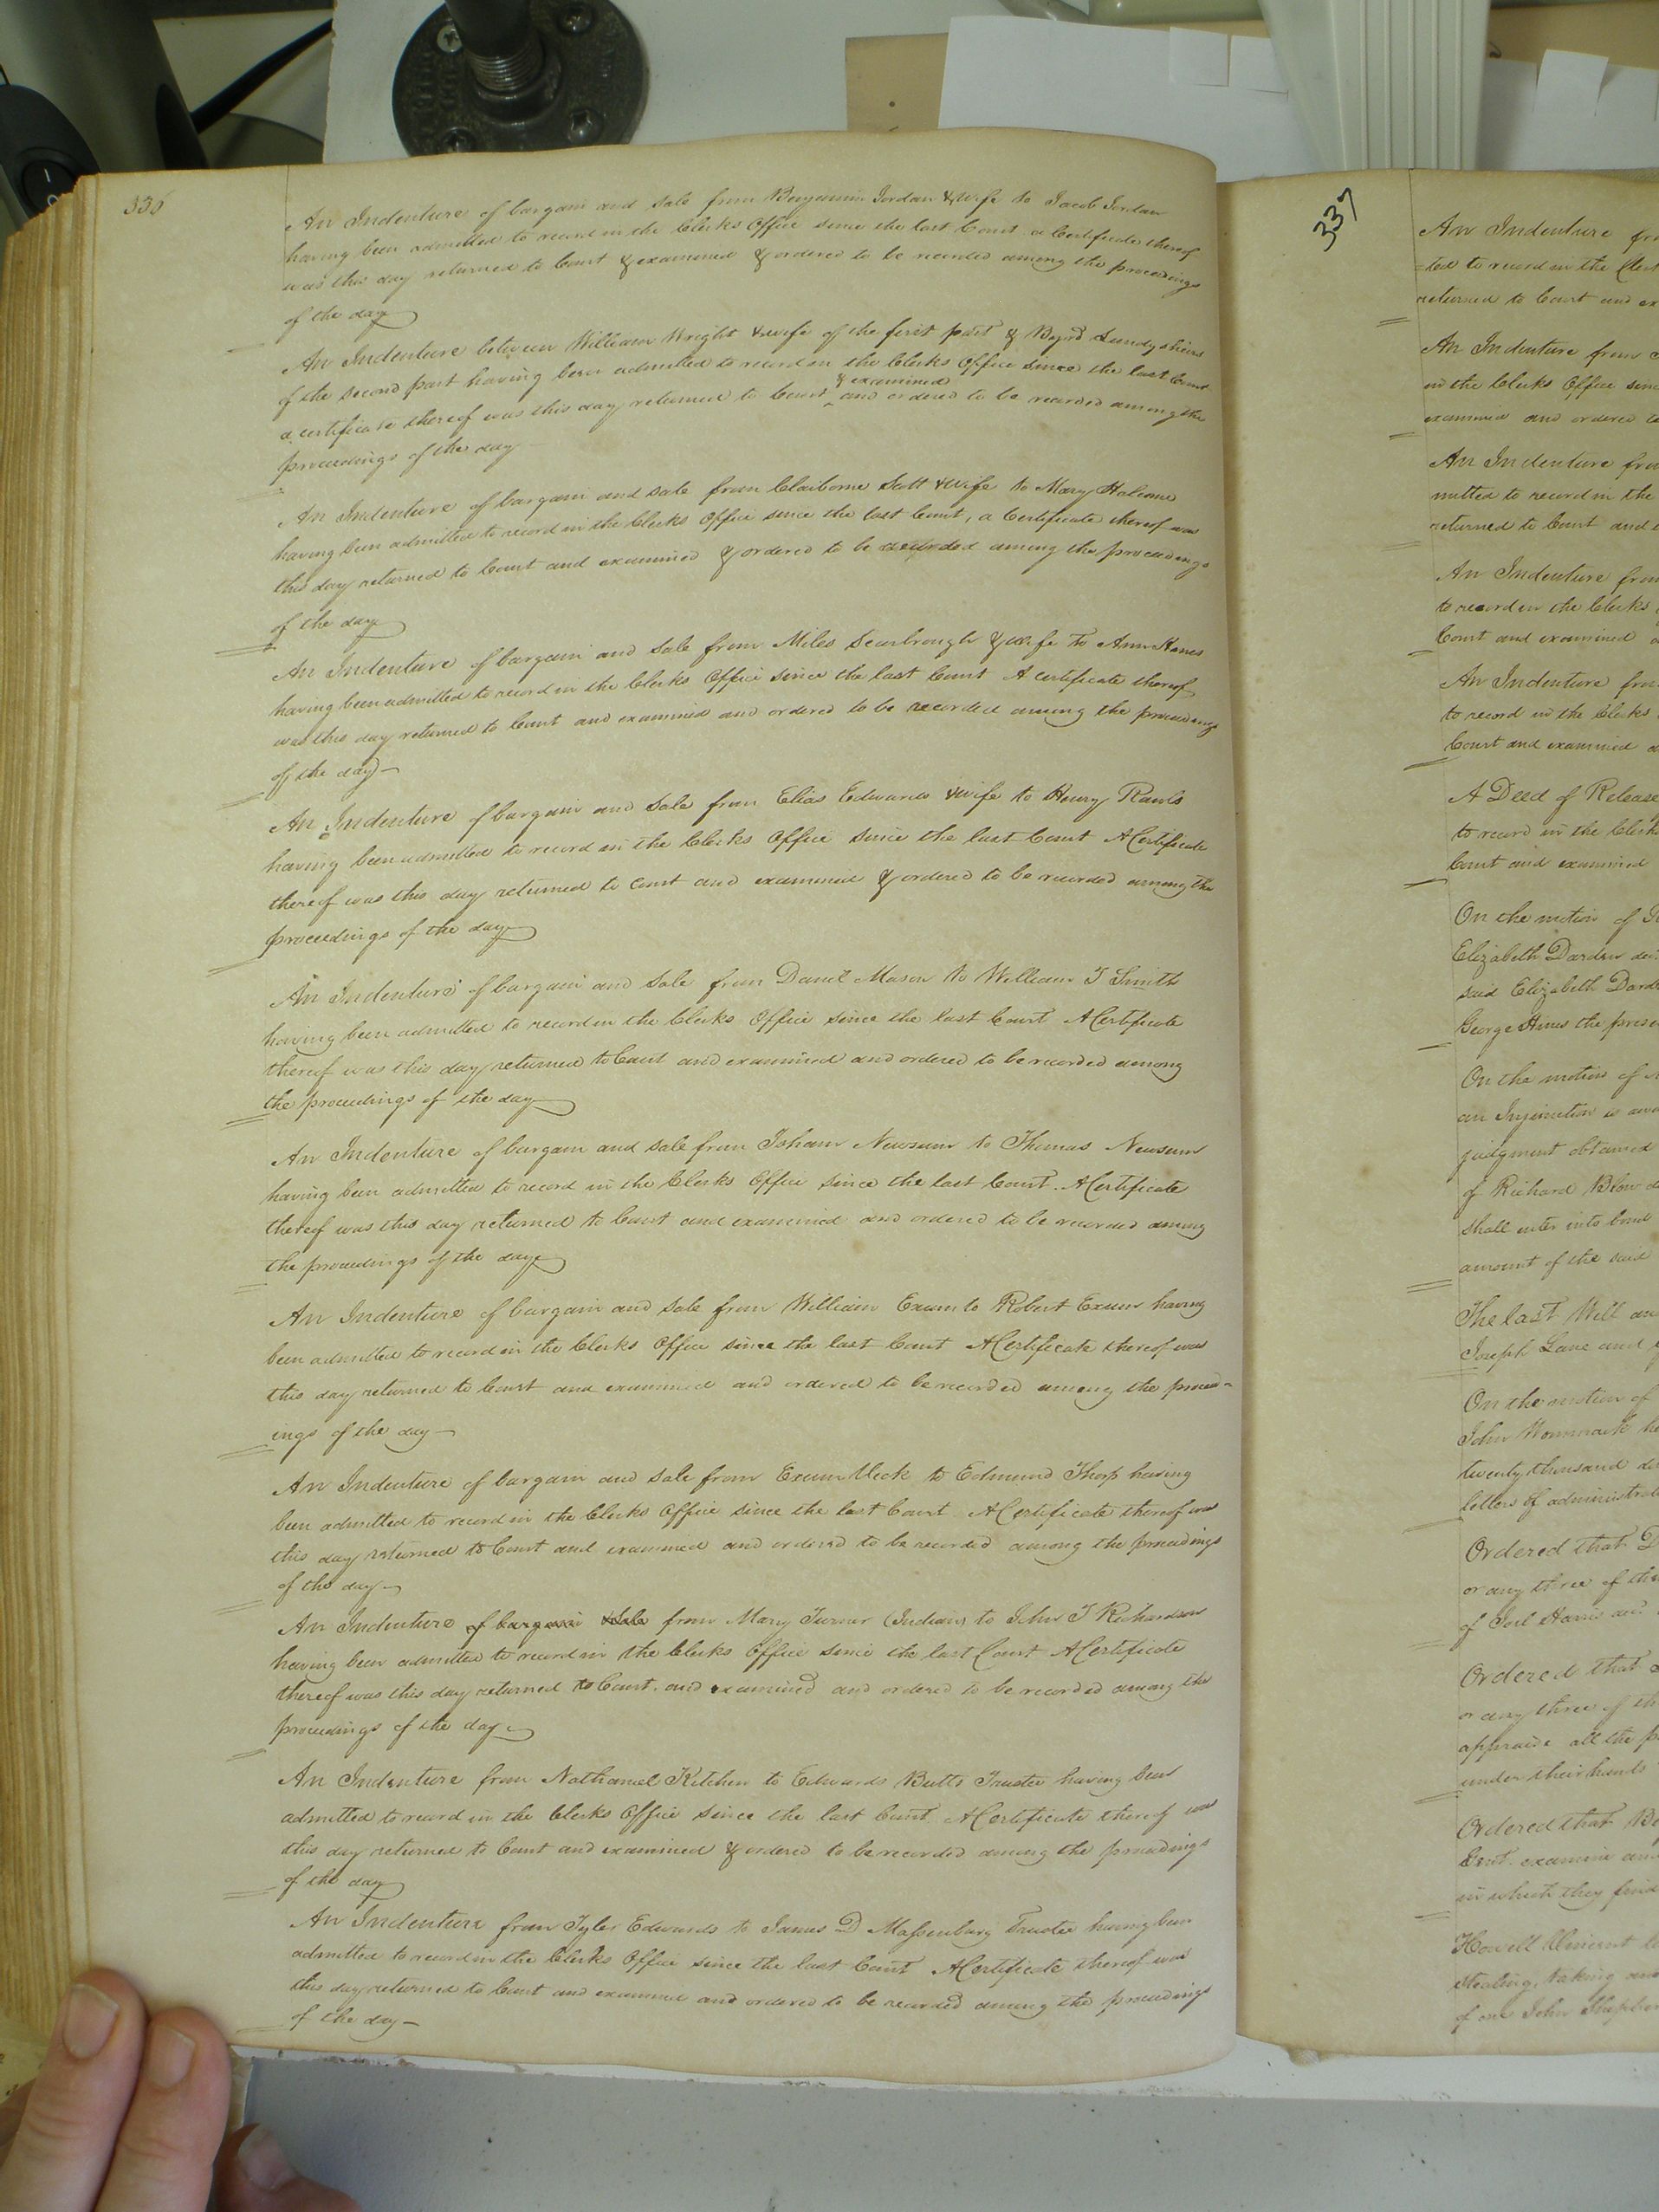 336
An Indenture of bargain and sale from Benjamin Jordan & wife to Jacob Jordan
having been admitted to record in the Clerks Office since the last Court a Certificate thereof
was this day returned to Court & examined & ordered to be recorded among the proceedings
of the day
An Indenture between William Wright & wife of the first part & Byrd Lundy
of the second part having been admitted to record in the Clerks Office since the last Court
& examined
a certificate thereof was this day returned to Court ^ and ordered to be recorded among the
proceedings of the day
An Indenture of bargain and sale from Claiborne Scott & wife to Mary Holcome
having been admitted to record in the Clerks Office since the last Court, a Certificate thereof was
this day returned to Court and examined & ordered to be recorded among the proceedings
of the day
An Indenture of bargain and sale from Miles Scarbrough & wife to Ann
having been admitted to record in the Clerks Office since the last Court A certificate thereof
was this day returned to Court and examined and ordered to be recorded among the proceedings
of the day —
An Indenture of bargain and sale from Elias Edwards & wife to Henry Rawls
having been admitted to record in the Clerks Office since the last Court A Certificate
thereof was this day returned to Court and examined & ordered to be recorded among the
proceedings of the day
An Indenture of bargain and sale from Daniel Mason to William T Smith
having been admitted to record in the Clerks Office since the last Court A Certificate
thereof was this day returned to Court and examined and ordered to be recorded among
the proceedings of the day
An Indenture of bargain and sale from Isham Newsum to Thomas Newsum
having been admitted to record in the Clerks Office since the last Court. A Certificate
thereof was this day returned to Court and examined and ordered to be recorded among
the proceedings of the day
An Indenture of bargain and sale from William Exum to Robert Exum having
been admitted to record in the Clerks Office since the last Court A Certificate thereof was
this day returned to Court and examined and ordered to be recorded among the proceed-
ings of the day —
An Indenture of bargain and sale from Exum Vick to Edmund Thorp having
been admitted to record in the Clerks Office since the last Court A Certificate thereof was
this day returned to Court and examined and ordered to be recorded among the proceedings
of the day —
An Indenture of bargain & Sale from Mary Turner (Indian) to John T Richardson
having been admitted to record in the Clerks Office since the last Court A Certificate
thereof was this day returned to Court. and examined and ordered to be recorded among the
proceedings of the day —
An Indenture from Nathaniel Kitchen to Edwards Butts Trustee having been
admitted to record in the Clerks Office since the last Court A Certificate thereof was
this day returned to Court and examined & ordered to be recorded among the proceedings
of the day
An Indenture from Tyler Edwards to James D Massenburg Trustee having been
admitted to record in the Clerks Office since the last Court A Certificate thereof was
this day returned to Court and examined and ordered to be recorded among the proceedings
of the day —
337
An Indenture
=ted to record in the
returned to Court and
An Indenture from
in the Clerks Office
examined and ordered
An Indenture
mitted to record in the
returned to Court and
An Indenture
to record in the Clerks
Court and examined
An Indenture
to record in the Clerks
Court and examined
A Deed of Release
to record in the
Court and examined
On the motion of
Elizabeth Darden
said Elizabeth
George Hines the
On the motion of
an Injunction is
judgment obtained
of Richard Blow
shall enter into bond
amount of the said
The last Will
Joseph Lane and
On the motion of
John Wommack
twenty thousand
letters of
Ordered that
or any three of
of Joel Harris and
Ordered that
or any three of
appraise all the
under their hands
Ordered that
examine
in which they
Howell Vincent
stealing, taking
of one John